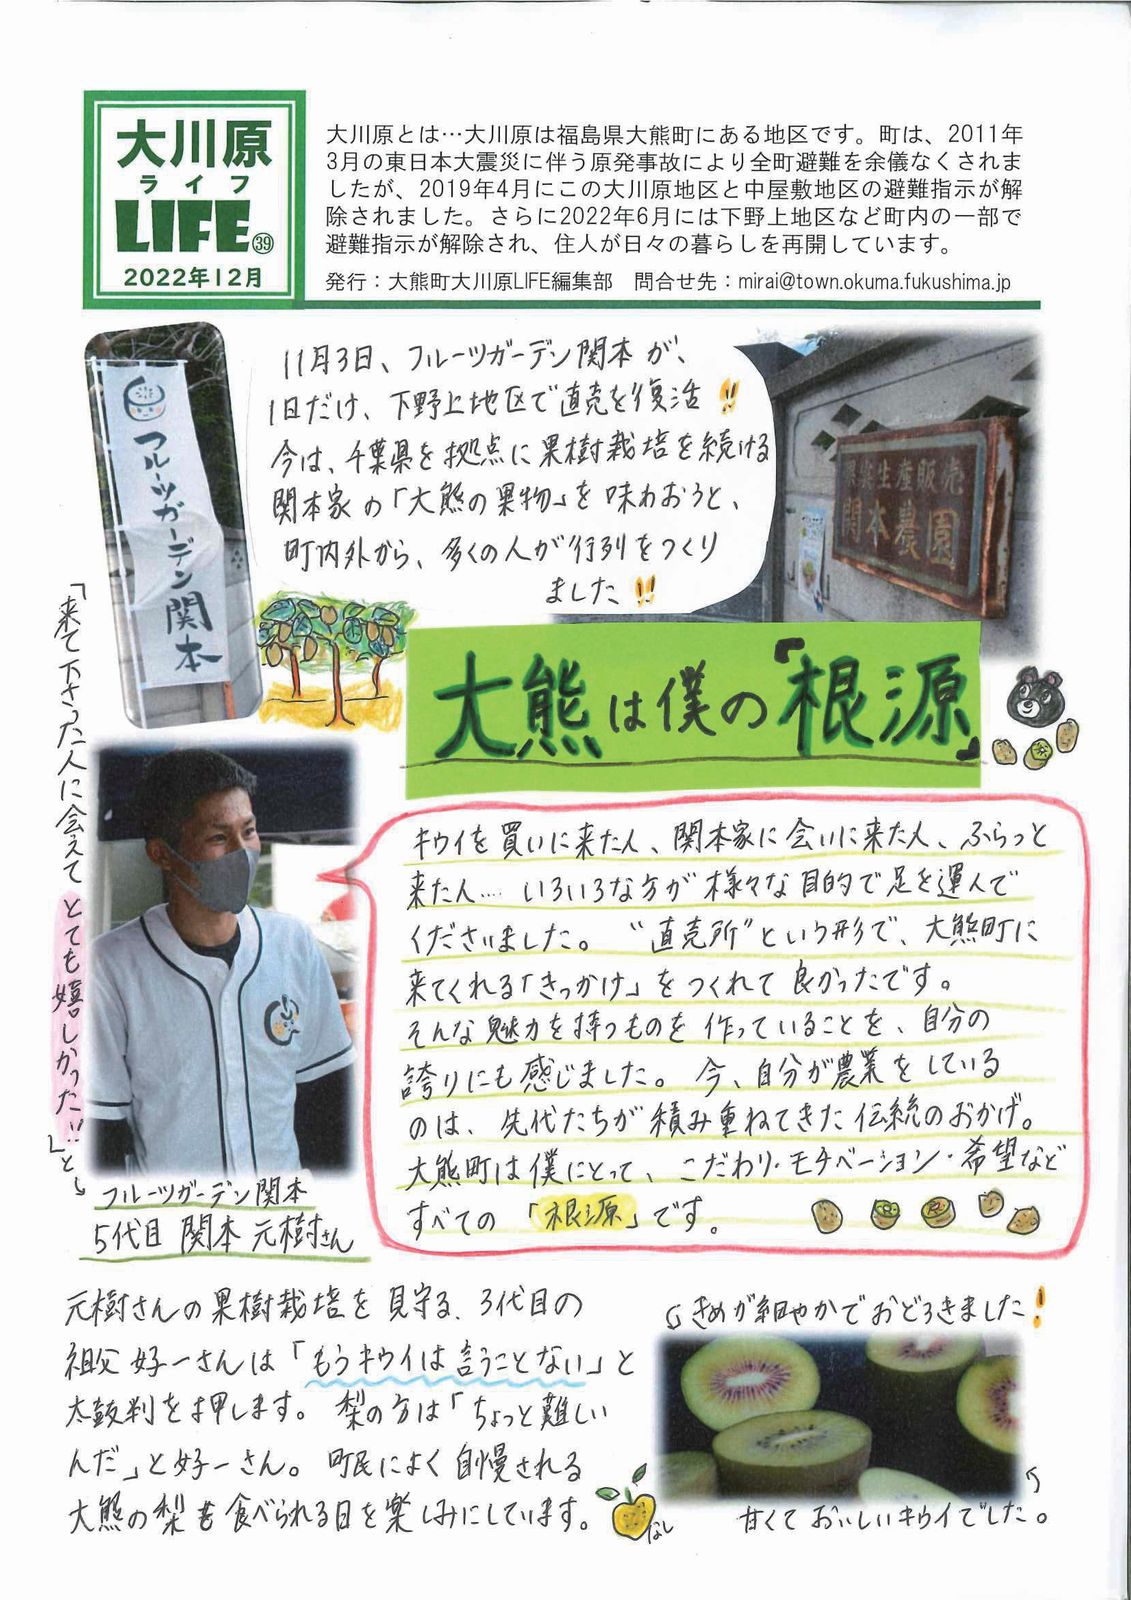 大川原
ライフ
LIFE㊴
2022年12月
大川原とは…大川原は福島県大熊町にある地区です。町は、2011年
3月の東日本大震災に伴う原発事故により全町避難を余儀なくされま
したが、2019年4月にこの大川原地区と中屋敷地区の避難指示が解
除されました。さらに2022年6月には下野上地区など町内の一部で
避難指示が解除され、住人が日々の暮らしを再開しています。
発行：大熊町大川原LIFE編集部　問合せ先：mirai@town.okuma.fukushima.jp
フルーツガーデン関本
11月3日、フルーツガーデン関本が、
1日だけ、下野上地区で直売を復活!!
今は、千葉県を拠点に果樹栽培を続ける
関本家の「大熊の果物」を味わおうと、
町内外から、多くの人が行列をつくり
ました!!
果実生産販売
関本農園
大熊は僕の「根源」
「来て下さった人に会えてとても嬉しかった!!」と
フルーツガーデン関本
5代目 関本 元樹さん
キウイを買いに来た人、関本家に会いに来た人、ふらっと
来た人…. いろいろな方が様々な目的で足を運んで
くださいました。“直売所”という形で、大熊町に
来てくれる「きっかけ」をつくれて良かったです。
そんな魅力を持つものを作っていることを、自分の
誇りにも感じました。今、自分が農業をしている
のは、先代たちが積み重ねてきた伝統のおかげ。
大熊町は僕にとって、こだわり・モチベーション・希望など
すべての「根源」です。
元樹さんの果樹栽培を見守る、3代目の
祖父 好一さんは「もうキウイは言うことない」と
太鼓判を押します。梨の方は「ちょっと難しい
んだ」と好一さん。町民によく自慢される
大熊の梨も食べられる日を楽しみにしています。
なし
きめが細やかでおどろきました!
甘くておいしいキウイでした。